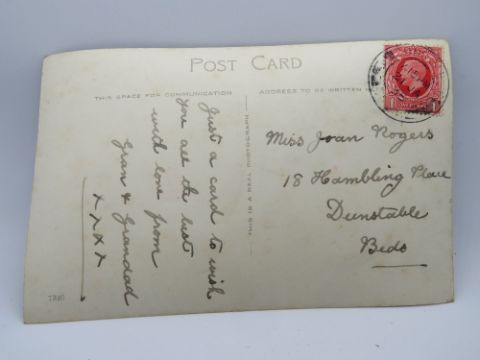 POST CARD
THIS SPACE FOR COMMUNICATION
ADDRESS TO BE WRITTEN
Just a card to wish
you all the best
with love from
Gran & Grandad
x x x x
THIS IS A REAL PHOTOGRAPH
Miss Joan Rogers
18 Hambling Place
Dunstable
Beds
1
1